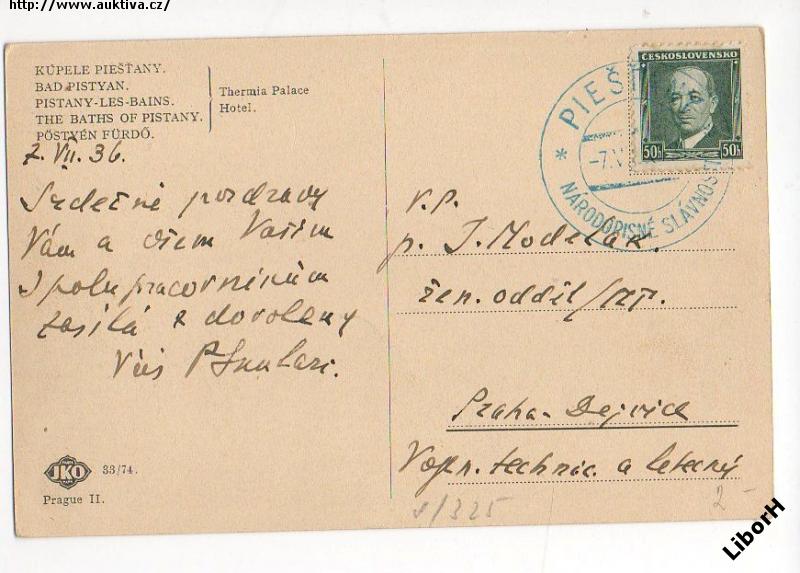 http://www.auktiva.cz/
KÚPELE PIEŠŤANY.
BAD PISTYAN.
PISTANY-LES-BAINS.
THE BATHS OF PISTANY.
PÖSTYÉN FÜRDŐ.
Thermia Palace
Hotel.
ČESKOSLOVENSKO
50h 50h
PIEŠ
* -7.V
NÁRODOPISNÉ SLÁVNOS
7. VII. 36.
Srdečné pozdravy
Vám a všem Vašim
spolupracovníkům
zasílá z dovolené
Váš
V.P.
p. J. Modelák.
žen. oddíl
Praha-Dejvice
technic. a letecký
JKO 33/74.
Prague II.
s/325
2-
LiborH